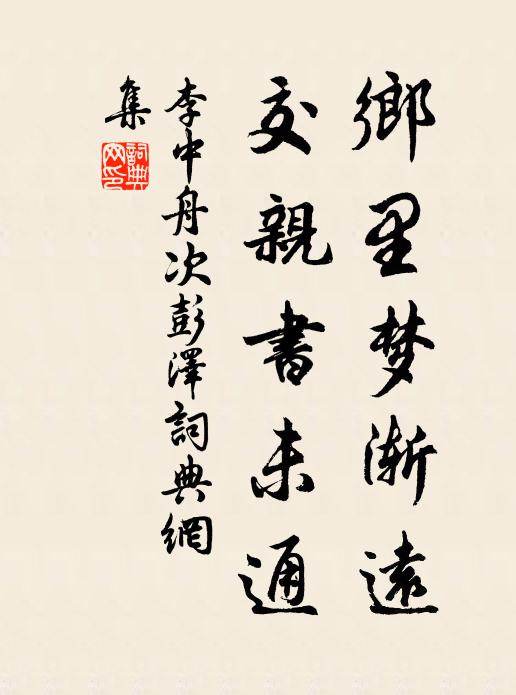 鄉里梦渐遠
交親書未通
李中舟次彭澤詞典網
集
詞典網印